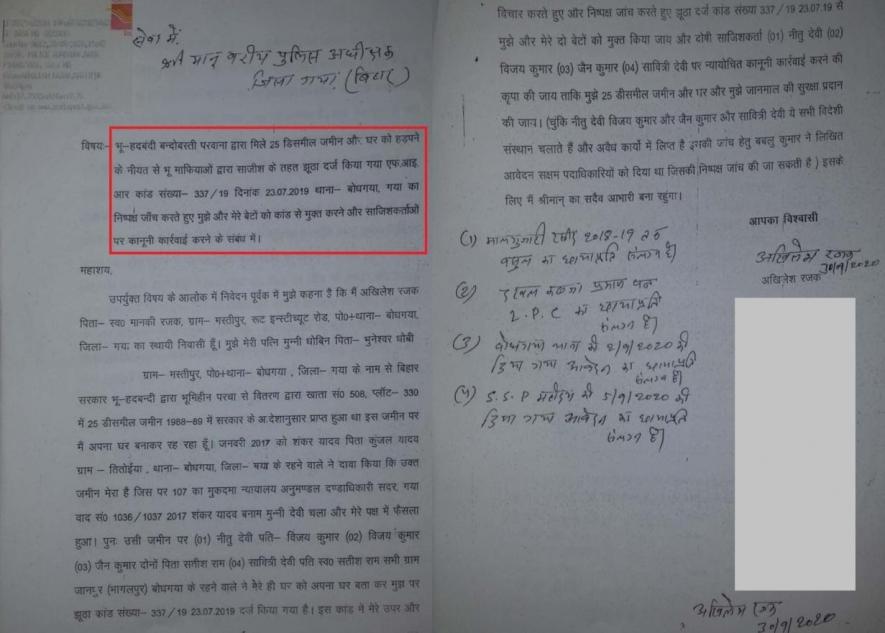 सेवा में,
श्री मान वरीय पुलिस अधीक्षक
जिला गया, (बिहार)
विषयः– भू–हदबंदी बन्दोबस्ती परवाना द्वारा मिले 25 डिसमील जमीन और घर को हड़पने
के नीयत से भू माफियाओं द्वारा साजीश के तहत झूठा दर्ज किया गया एफ.आई.
आर कांड संख्या– 337/19 दिनांक 23.07.2019 थाना– बोधगया, गया का
निष्पक्ष जाँच करते हुए मुझे और मेरे बेटों को कांड से मुक्त करने और साजिशकर्ताओं
पर कानूनी कार्रवाई करने के संबंध में।
महाशय,
उपर्युक्त विषय के आलोक में निवेदन पूर्वक में मुझे कहना है कि मैं अखिलेश रजक
पिता– स्व0 मानकी रजक, ग्राम– मस्तीपुर, रूट इन्स्टीच्यूट रोड, पो0+थाना– बोधगया,
जिला– गया का स्थायी निवासी हूँ। मुझे मेरी पत्नि मुन्नी धोबिन पिता– भुनेश्वर धोबी
ग्राम– मस्तीपुर, पो0+थाना– बोधगया , जिला– गया के नाम से बिहार
सरकार भू–हदबन्दी द्वारा भूमिहीन परचा से वितरण द्वारा खाता सं0 508, प्लॉट– 330
में 25 डीसमील जमीन 1988–89 में सरकार के आदेशानुसार प्राप्त हुआ था इस जमीन पर
मैं अपना घर बनाकर रह रहा हूँ। जनवरी 2017 को शंकर यादव पिता कुंजल यादव
ग्राम – तितोईया , थाना– बोधगया, जिला– गया के रहने वाले ने दावा किया कि उक्त
जमीन मेरा है जिस पर 107 का मुकदमा न्यायालय अनुमण्डल दण्डाधिकारी सदर, गया
वाद सं0 1036/1037 2017 शंकर यादव बनाम मुन्नी देवी चला और मेरे पक्ष में फैसला
हुआ। पुनः उसी जमीन पर (01) नीतु देवी पति– विजय कुमार (02) विजय कुमार
(03) जैन कुमार दोनों पिता सतीश राम (04) सावित्री देवी पति स्व0 सतीश राम सभी ग्राम
जानपुर (भागलपुर) बोधगया के रहने वाले ने मेरे ही घर को अपना घर बता कर मुझ पर
झूठा कांड संख्या– 337/19 23.07.2019 दर्ज किया गया है। इस कांड में मेरे उपर और
विचार करते हुए और निष्पक्ष जांच करते हुए झूठा दर्ज कांड संख्या 337/19 23.07.19 से
मुझे और मेरे दो बेटों को मुक्त किया जाय और दोषी साजिशकर्ता (01) नीतु देवी (02)
विजय कुमार (03) जैन कुमार (04) सावित्री देवी पर न्यायोचित कानूनी कार्रवाई करने की
कृपा की जाय ताकि मुझे 25 डीसमील जमीन और घर और मुझे जानमाल की सुरक्षा प्रदान
की जाय। (चुंकि नीतु देवी विजय कुमार और जैन कुमार और सावित्री देवी ये सभी विदेशी
संस्थान चलाते हैं और अवैध कार्यो में लिप्त है इनकी जांच हेतु बबलु कुमार ने लिखित
आवेदन सक्षम पदाधिकारियों को दिया था जिसकी निष्पक्ष जांच की जा सकती है ) इसके
लिए मैं श्रीमान् का सदैव आभारी बना रहुंगा।
आपका विश्वासी
अखिलेश रजक
30/9/2020
अखिलेश रजक
(1) मालगुजारी रसीद 2018-19 तक
का छायाप्रति संलग्न है।
(2) दखल कब्जा प्रमाण पत्र
L.P.C का छायाप्रति
संलग्न है।
(3) बोधगया थाना को 2/9/2020 को
दिया गया आवेदन का छायाप्रति
संलग्न है।
(4) S.S.P महोदय को 5/9/2020 को
दिया गया आवेदन का छायाप्रति
संलग्न है।
अखिलेश रजक
30/9/2020